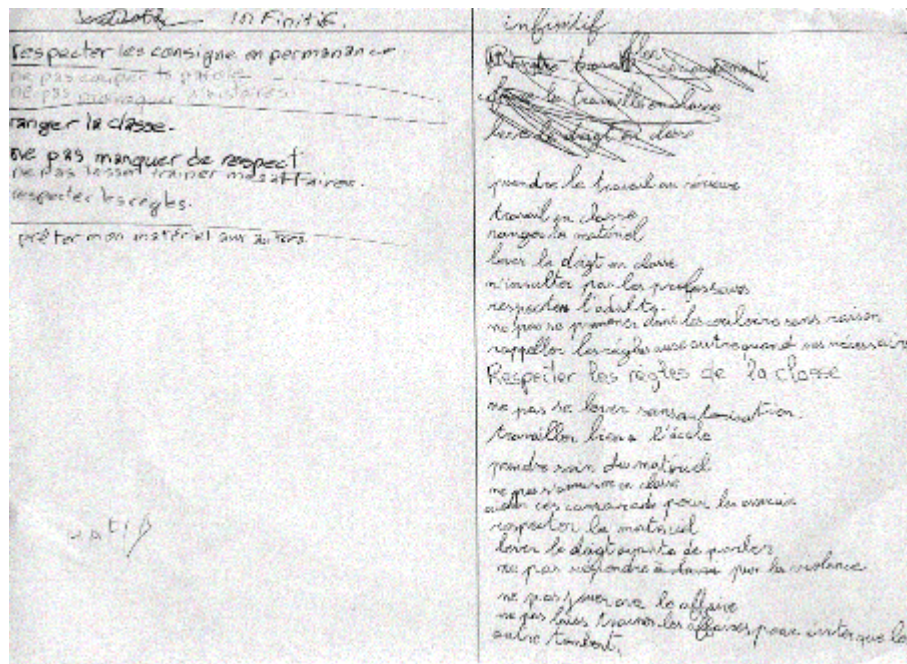 infinitif.
respecter les consigne en permanance.
ne pas couper la parole
ne pas manquer
ranger la classe.
ne pas manquer de respect
ne pas laisser trainer mes affaires.
respecter les règles.
prêter mon matériel aux autres
infinitif
travail
le travaille en classe
lever le doigt en classe
prendre le travail au sérieux
travail en classe
ranger le matériel
lever le doigt en classe
n'insulter pas les professeurs
respecter l'adulte.
ne pas se promener dans les couloirs sans raison
rappeller les règles aux autre quand
Respecter les règles de la classe
ne pas se lever sans autorisation.
travailler bien a l'école
prendre soin du matériel
ne pas s'amuser en classe
ces camarade pour les
respecter le matériel
lever le doigt de parler
ne pas répondre par la violence
ne pas jouer avec le affaire
ne pas lais trainer les affaires pour éviter que les
autre tombent.